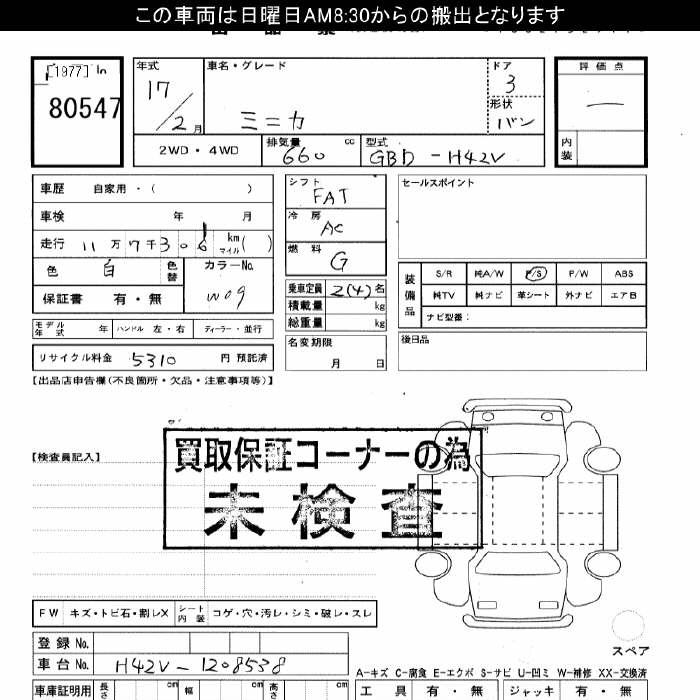 この車両は日曜日AM8:30からの搬出となります
[1977] In
80547
年式 車名・グレード ドア 評価点
17/2月 ミニカ 3 —
形状 バン
2WD・4WD 排気量 660 cc 型式 GBD-H42V 内装
車歴 自家用・( )
シフト FAT
セールスポイント
車検 年 月
冷房 AC
走行 11万7千306 km マイル ( )
燃料 G
色 白 色替 カラーNo. W09
装備品 S/R 純A/W P/S P/W ABS
純TV 純ナビ 革シート 外ナビ エアB
保証書 有・無
乗車定員 2(4)名
積載量 kg
総重量 kg
ナビ型番:
モデル年式 年 ハンドル 左・右 ディーラー・並行
名変期限 月 日
後日品
リサイクル料金 5310 円 預託済
【出品店申告欄(不良箇所・欠品・注意事項等)】
【検査員記入】
買取保証コーナーの為
未検査
FW キズ・トビ石・割レX シート内装 コゲ・穴・汚レ・シミ・破レ・スレ
スペア
登録No.
車台No. H42V-1208538
A-キズ C-腐食 E-エクボ S-サビ U-凹ミ W-補修 XX-交換済
車庫証明用 長さ cm 幅 cm 高さ cm 工具 有・無 ジャッキ 有・無